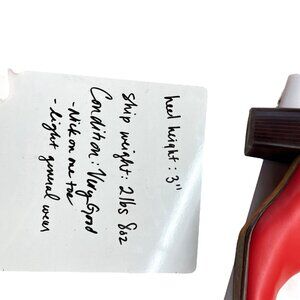 heel height: 3"
Ship weight: 2 lbs 8oz
Condition: Very Good
- Nick on one toe
- light general wear